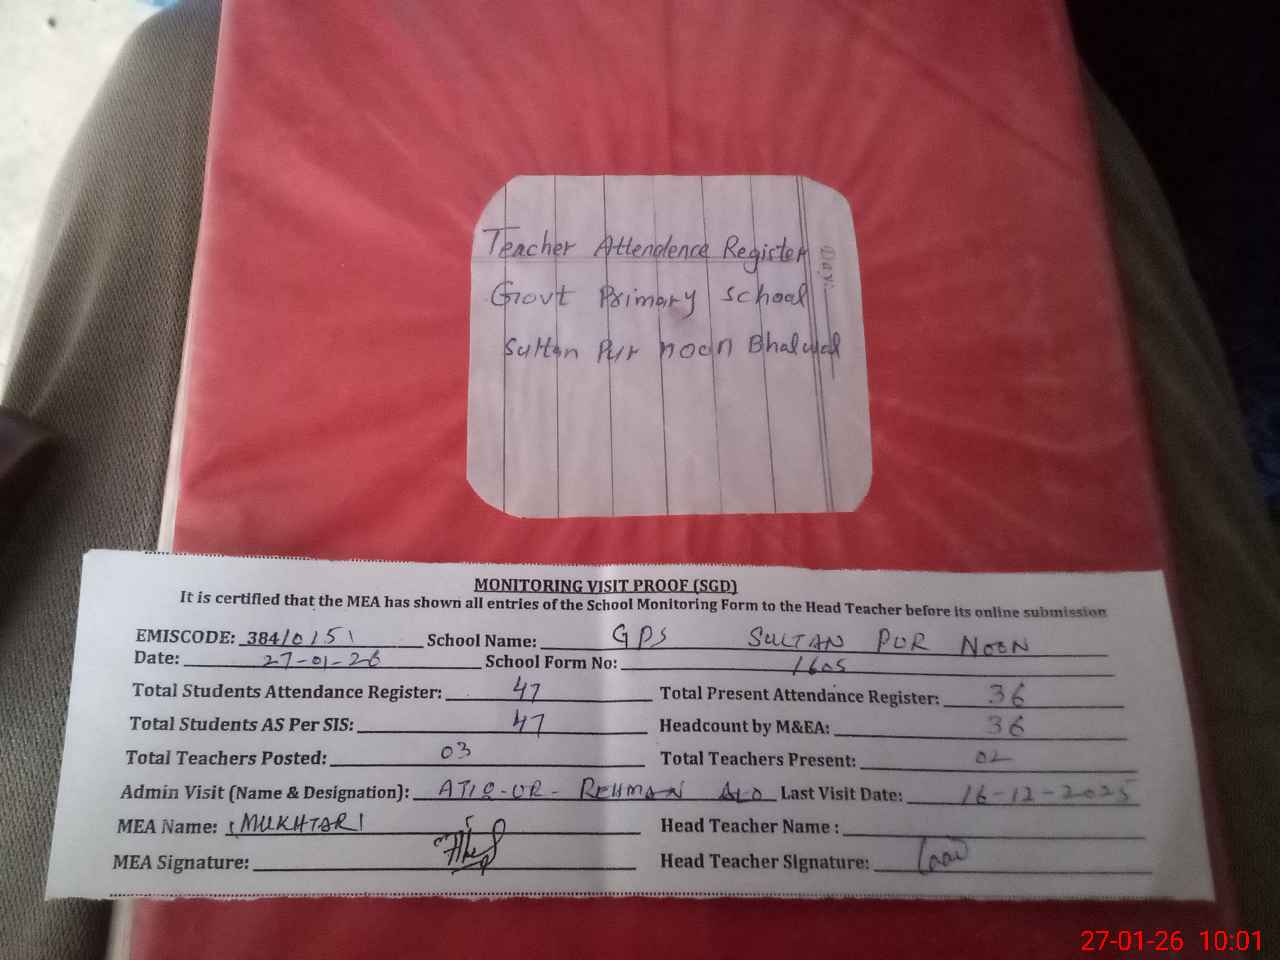 Teacher Attendence Register
Govt Primary School
Sultan Pur noon Bhalwal
Day:
MONITORING VISIT PROOF (SGD)
It is certified that the MEA has shown all entries of the School Monitoring Form to the Head Teacher before its online submission
EMISCODE: 38410151 School Name: GPS SULTAN PUR NOON
Date: 27-01-26 School Form No: 1605
Total Students Attendance Register: 47 Total Present Attendance Register: 36
Total Students AS Per SIS: 47 Headcount by M&EA: 36
Total Teachers Posted: 03 Total Teachers Present: 02
Admin Visit (Name & Designation): ATIQ-UR-REHMAN Last Visit Date: 16-12-2025
MEA Name: MUKHTAR Head Teacher Name :
MEA Signature: Head Teacher Signature:
27-01-26 10:01